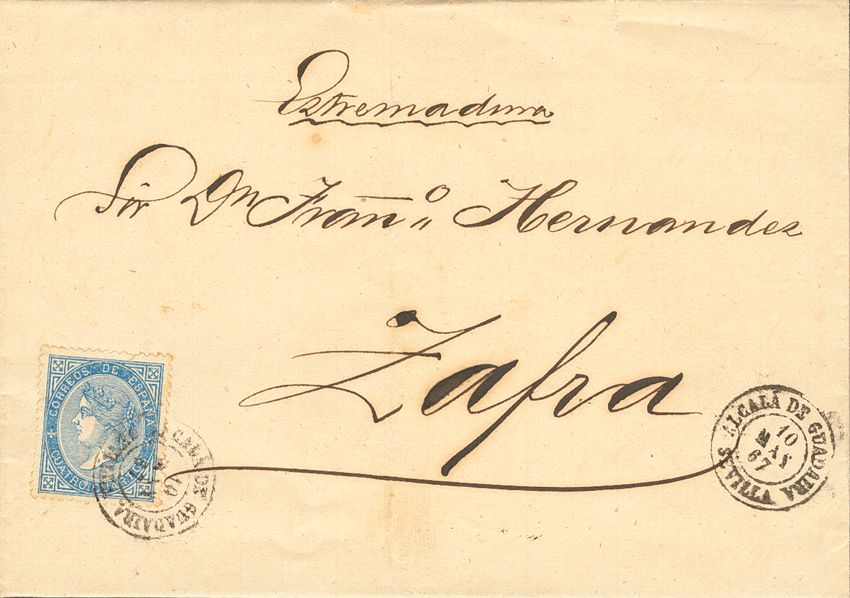 Extremadura
Sor Dn Franco Hernandez
Zafra
CORREOS DE ESPAÑA
CUATRO
ALCALÁ DE GUADAIRA
10
MAY
67
SEVILLA
ALCALÁ DE GUADAIRA
10